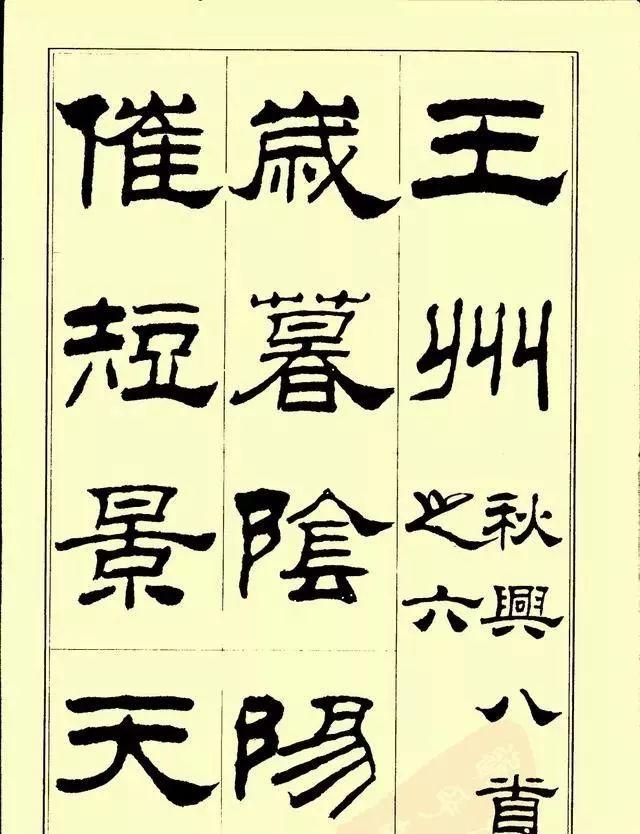 王州
秋興八首
之六
歲暮陰陽
催短景天